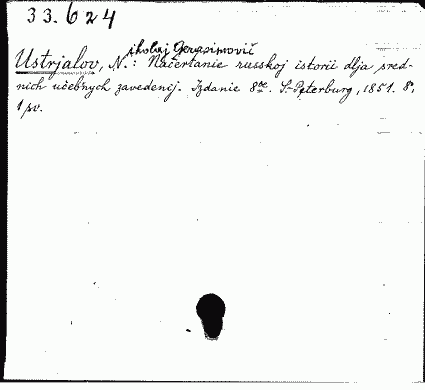 33.624
ikolaj Gerasimovič
Ustrjalov, N.: Načertanie russkoj istorii dlja sred-
nich učebnych zavedenij. Izdanie 8oe. S.-Peterburg, 1851. 8°,
1 sv.